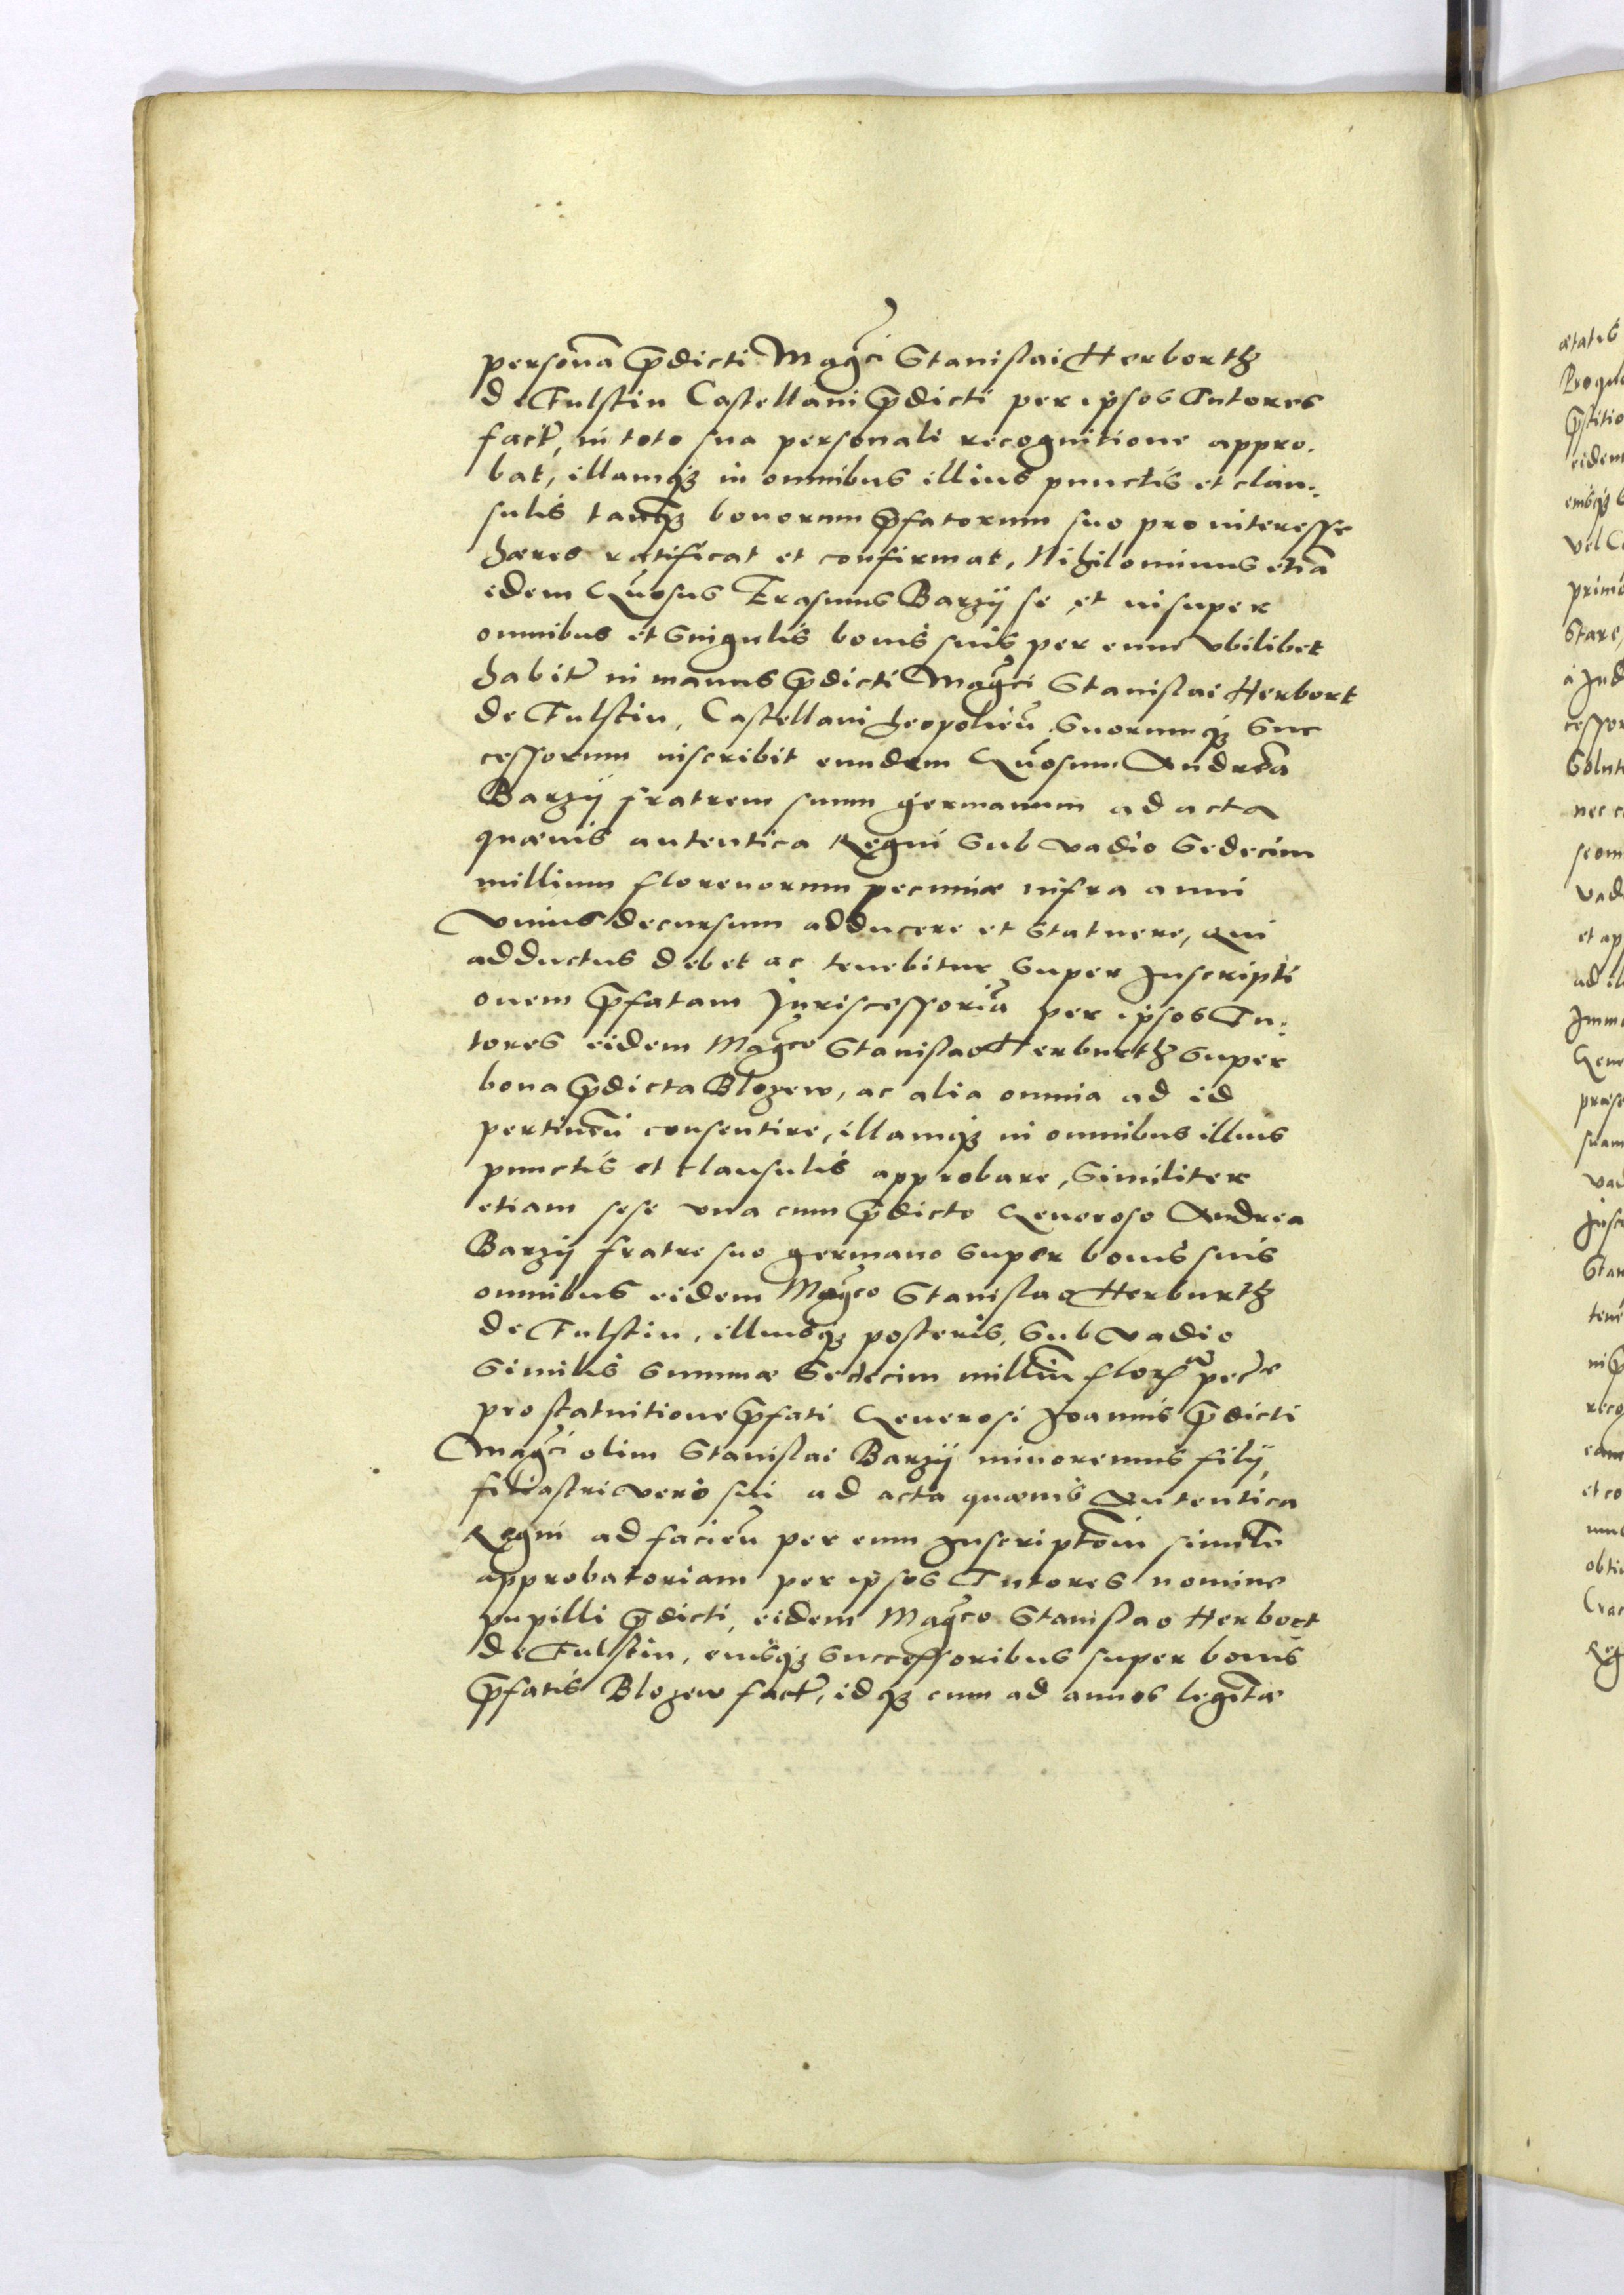 personã p̃dicti Magci Stanislai Herborth
de Fulstin Castellani p̃dicti per ipsos Tutores
fact̃, in toto sua personali recognitione appro.
bat, illamqȝ in omnibus illius punctis et clau:
sulis tanq̃ȝ bonorum p̃fatorum suo pro interesse
hæres ratificat et confirmat, Nihilominus etiã
idem Gñosus Erasmus Barzij se et insuper
omnibus et singulis bonis suis per eum vbilibet
habit̃ in manus p̃dicti Magci Stanislai Herbort
de Fulstin, Castellani Leopolień suorumqȝ suc
cessorum inscribit eundem Gñosum Andreã
Barzij fratrem suum germanum ad acta
quævis autentica Regni sub vadio sedecim
millium florenorum pecuniæ infra anni
vnius decursum adducere et statuere, qui
adductus debet ac tenebitur super Inscripti
onem p̃fatam Juriscessoriã per ipsos Tu:
tores eidem Magco Stanislao Herburth super
bona p̃dicta Blozew, ac alia omnia ad id
pertineñ consentire, illamqȝ in omnibus illius
punctis et clausulis approbare, similiter
etiam sese vna cum p̃dicto Generoso Andrea
Barzij fratre suo germano super bonis suis
omnibus eidem Magco Stanislao Herburth
de Fulstin, illiusqȝ posteris, sub vadio
similis summæ sedecim milliũ flor̃ pec̃æ
pro statuitione p̃fati Generosi Joannis p̃dicti
Magci olim Stanislai Barzij minorennis filij,
filiastri vero sui ad acta quævis Autentica
Regni ad facieñ per eum Inscriptoẽm similẽ
approbatoriam per ipsos Tutores nomine
pupilli p̃dicti, eidem Magco Stanislao Herbort
de Fulstin, eiusqȝ successoribus super bonis
p̃fatis Blozew fact̃, idqȝ cum ad annos legit̃æ